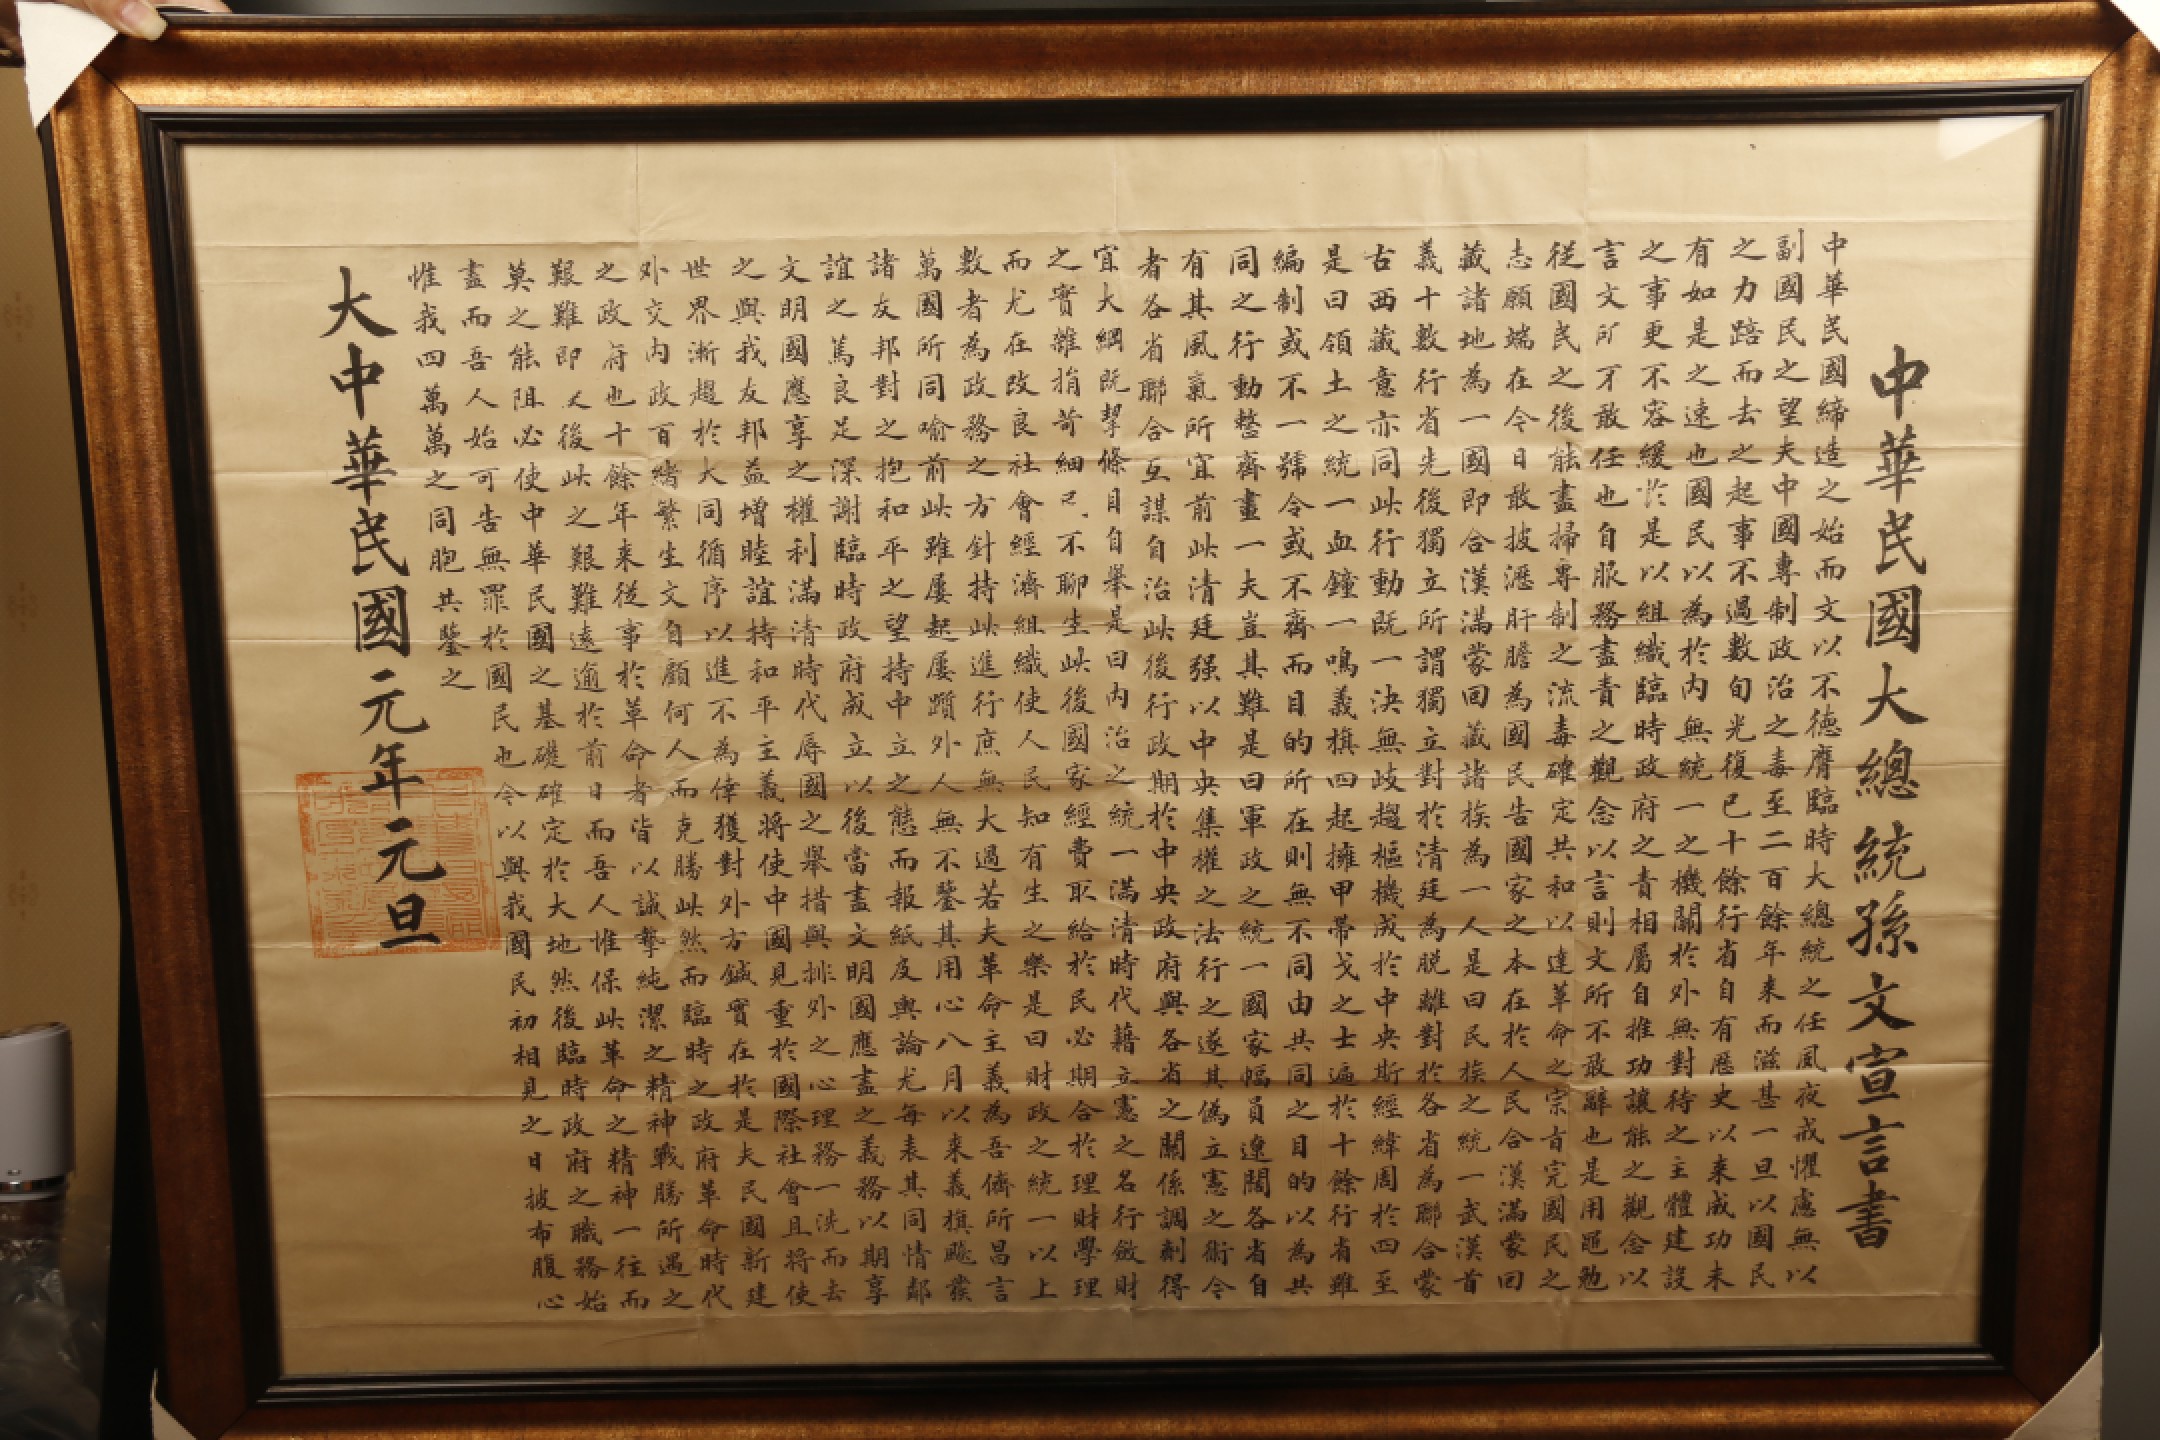 中華民國大總統孫文宣言書
中華民國締造之始而文以不德膺臨時大總統之任夙夜戒懼慮無以
副國民之望夫中國專制政治之毒至二百餘年來而滋甚一旦以國民
之力踣而去之起事不過數旬光復已十餘行省自有歷史以來成功未
有如是之速也國民以為於內無統一之機關於外無對待之主體建設
之事更不容緩於是以組織臨時政府之責相屬自推功讓能之觀念以
言文所不敢任也自服務盡責之觀念以言則文所不敢辭也是用黽勉
從國民之後能盡掃專制之流毒確定共和以達革命之宗旨完國民之
志願端在今日敢披瀝肝膽為國民告國家之本在於人民合漢滿蒙回
藏諸地為一國即合漢滿蒙回藏諸族為一人是曰民族之統一武漢首
義十數行省先後獨立所謂獨立對於清廷為脫離對於各省為聯合蒙
古西藏意亦同此行動既一決無歧趨樞機成於中央斯經緯周於四至
是曰領土之統一血鐘一鳴義旗四起擁甲帶戈之士遍於十餘行省雖
編制或不一號令或不齊而目的所在則無不同由共同之目的以為共
同之行動整齊畫一夫豈其難是曰軍政之統一國家幅員遼闊各省自
有其風氣所宜前此清廷强以中央集權之法行之遂其偽立憲之術今
者各省聯合互謀自治此後行政期於中央政府與各省之關係調劑得
宜大綱既挈條目自舉是曰內治之統一滿清時代藉立憲之名行斂財
之實雜捐苛細 不聊生此後國家經費取給於民必期合於理財學理
而尤在改良社會經濟組織使人民知有生之樂是曰財政之統一以上
數者為政務之方針持此進行庶無大過若夫革命主義為吾儕所昌言
萬國所同喻前此雖屢起屢躓外人無不鑒其用心八月以來義旗飈發
諸友邦對之抱和平之望持中立之態而報紙及輿論尤每表其同情鄰
誼之篤良足深謝臨時政府成立以後當盡文明國應盡之義務以期享
文明國應享之權利滿清時代辱國之舉措與排外之心理務一洗而去
之與我友邦益增睦誼持和平主義將使中國見重於國際社會且將使
世界漸趨於大同循序以進不為倖獲對外方鍼實在於是夫民國新建
外交內政百緒繁生文自顧何人而克勝此然而臨時之政府革命時代
之政府也十餘年來從事於革命者皆以誠摯純潔之精神戰勝所遇之
艱難即 後此之艱難遠逾於前日而吾人惟保此革命之精神一往而
莫之能阻必使中華民國之基礎確定於大地然後臨時政府之職務始
盡而吾人始可告無罪於國民也今以與我國民初相見之日披布腹心
惟我四萬萬之同胞共鑒之
大中華民國元年元旦